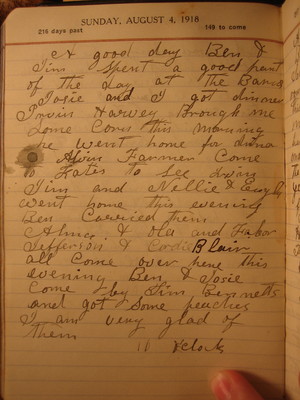 SUNDAY, AUGUST 4, 1918
216 days past 149 to come
A good day Ben &
Jim Spent a good part
of The Day at The Barns
Josie and I got dinner
Irvin Harvey Brough me
Some Corn this morning
he went home for dinner
Alvin Farmer Come
to Kates to See Irvin
Jim and Nellie &
went home this evening
Ben Carried Them
Alma & Ola and
Jefferson & Cordie Blair
all Come over here this
evening Ben & Josie
Come by Jim Bennetts
and got Some peaches
I am very glad of
Them
10 oclock